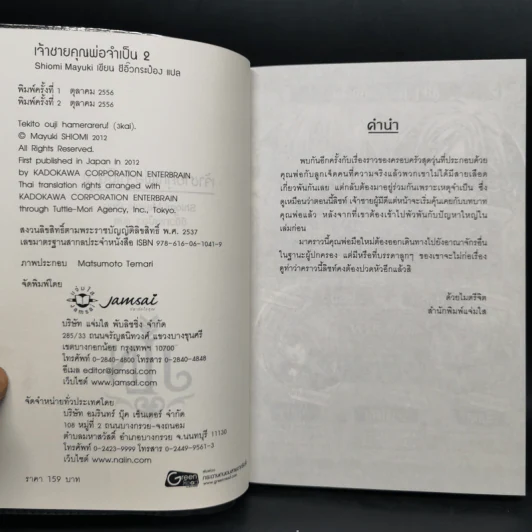 เจ้าชายคุณพ่อจำเป็น 2
Shiomi Mayuki เขียน ซีอิ๊วกระป๋อง แปล
พิมพ์ครั้งที่ 1 ตุลาคม 2556
พิมพ์ครั้งที่ 2 ตุลาคม 2556
Tekito ouji hamerareru! (3kai).
© Mayuki SHIOMI 2012
All Rights Reserved.
First published in Japan in 2012
by KADOKAWA CORPORATION ENTERBRAIN
Thai translation rights arranged with
KADOKAWA CORPORATION ENTERBRAIN
through Tuttle-Mori Agency, Inc., Tokyo.
สงวนลิขสิทธิ์ตามพระราชบัญญัติลิขสิทธิ์ พ.ศ. 2537
เลขมาตรฐานสากลประจำหนังสือ ISBN 978-616-06-1041-9
ภาพประกอบ Matsumoto Temari
จัดพิมพ์โดย
jamsai
บริษัท แจ่มใส พับลิชชิ่ง จำกัด
285/33 ถนนจรัญสนิทวงศ์ แขวงบางขุนศรี
เขตบางกอกน้อย กรุงเทพฯ 10700
โทรศัพท์ 0-2840-4800 โทรสาร 0-2840-4848
อีเมล editor@jamsai.com
เว็บไซต์ www.jamsai.com
จัดจำหน่ายทั่วประเทศโดย
บริษัท อมรินทร์ บุ๊ค เซ็นเตอร์ จำกัด
108 หมู่ที่ 2 ถนนบางกรวย-จงถนอม
ตำบลมหาสวัสดิ์ อำเภอบางกรวย จ.นนทบุรี 11130
โทรศัพท์ 0-2423-9999 โทรสาร 0-2449-9561-3
เว็บไซต์ www.naiin.com
ราคา 159 บาท
Green
คำนำ
พบกันอีกครั้งกับเรื่องราวของครอบครัวสุดวุ่นที่ประกอบด้วย
คุณพ่อกับลูกเจ็ดคนที่ความจริงแล้วพวกเขาไม่ได้มีสายเลือด
เกี่ยวพันกันเลย แต่กลับต้องมาอยู่ร่วมกันเพราะเหตุจำเป็น ซึ่ง
ดูเหมือนว่าตอนนี้ลิซท์ เจ้าชายผู้มีดีแต่หน้าจะเริ่มคุ้นเคยกับบทบาท
คุณพ่อแล้ว หลังจากที่เขาต้องเข้าไปพัวพันกับปัญหาใหญ่ใน
เล่มก่อน
มาคราวนี้คุณพ่อมือใหม่ต้องออกเดินทางไปยังอาณาจักรอื่น
ในฐานะผู้ปกครอง แต่มีหรือที่บรรดาลูกๆ ของเขาจะไม่ก่อเรื่อง
ดูท่าว่าคราวนี้ลิซท์คงต้องปวดหัวอีกแล้วสิ
ด้วยไมตรีจิต
สำนักพิมพ์แจ่มใส